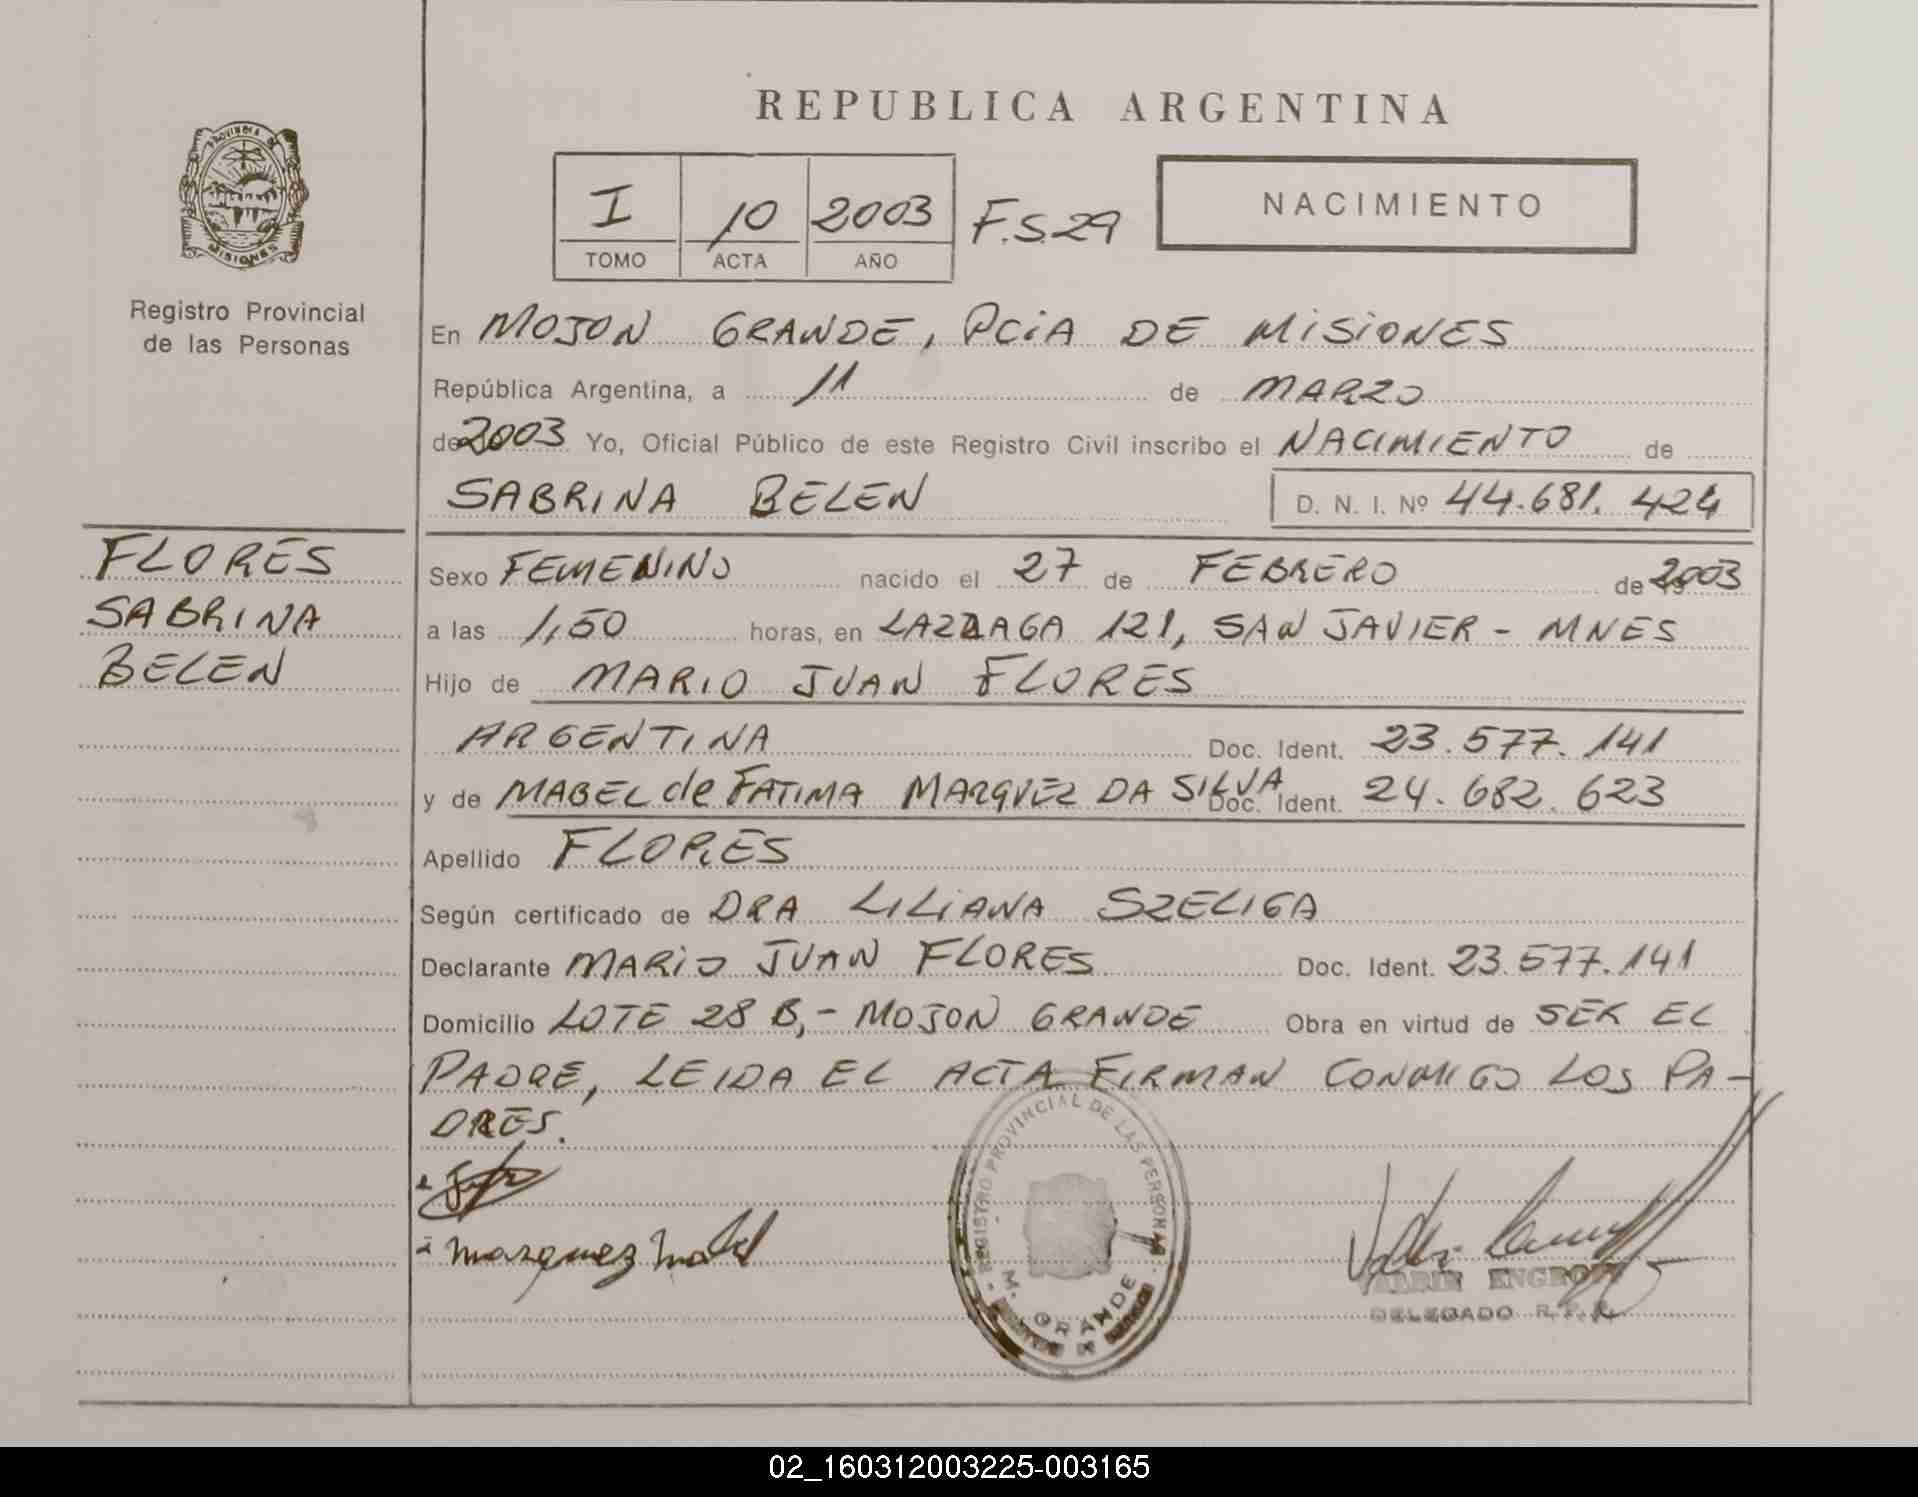 REPUBLICA ARGENTINA
PROVINCIA DE
MISIONES
Registro Provincial
de las Personas
I 10 2003 F.S.29
TOMO ACTA AÑO
NACIMIENTO
En MOJON GRANDE, PCiA DE MiSiONES
República Argentina, a 11 de MARZO
de 2003 Yo, Oficial Público de este Registro Civil inscribo el NACIMIENTO de
SABRINA BELEN D. N. I. Nº 44.681.424
FLORES
SABRINA
BELEN
Sexo FEMENINO nacido el 27 de FEBRERO de 2003
a las 1,50 horas, en LAZZAGA 121, SAN JAVIER - MNES
Hijo de MARIO JUAN FLORES
ARGENTINA Doc. Ident. 23.577.141
y de MABEL de FATIMA MARQUEZ DA SILVA Doc. Ident. 24.682.623
Apellido FLORES
Según certificado de DRA LiLiANA SZELIGA
Declarante MARiO JUAN FLORES Doc. Ident. 23.577.141
Domicilio LOTE 28 B,- MOJON GRANDE Obra en virtud de SER EL
PADRE, LEIDA EL ACTA FIRMAN CONMIGO LOS PA-
DRES.
Marquez Mabel
REGISTRO PROVINCIAL DE LAS PERSONAS
M. GRANDE
DELEGADO R.P.P.
02_160312003225-003165